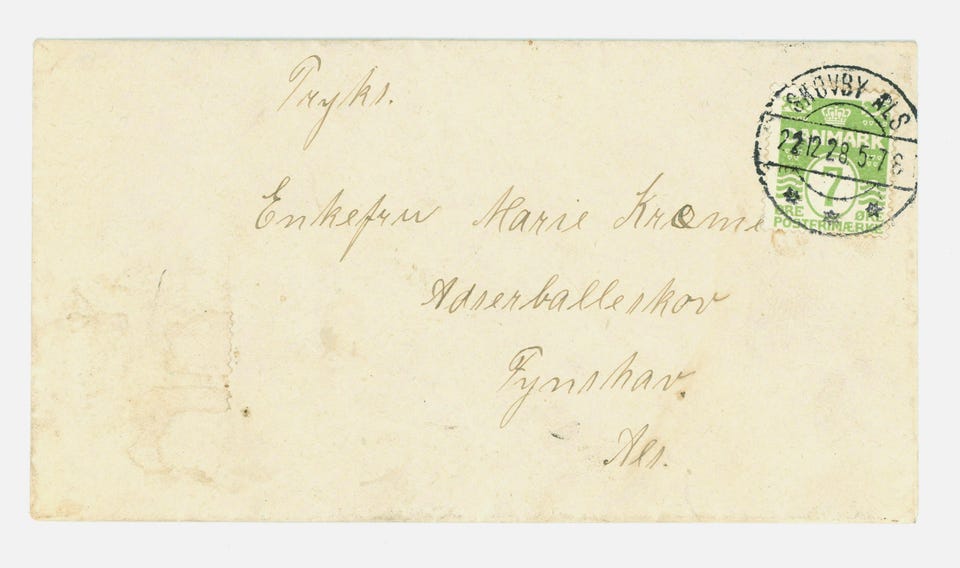 Tryks.
SKOVBY ALS
22 12 28 5-7 E
DANMARK
7
ØRE ØRE
POSTFRIMÆRKE
Enkefru Marie Kræme
Adserballeskov
Fynshav.
Als.